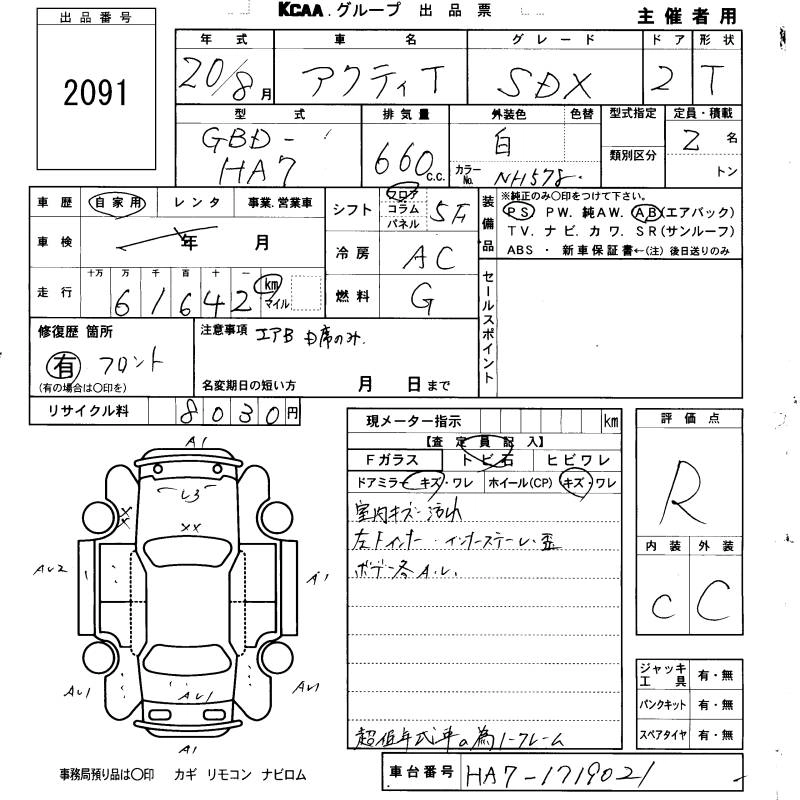 KCAA.グループ 出品票
主催者用
出品番号
2091
年式 車名 グレード ドア 形状
20/8月 アクティT SDX 2 T
型式 排気量 外装色 色替 型式指定 定員・積載
GBD-HA7 660 c.c. 白 カラーNo. NH578 類別区分 2名 トン
車歴 自家用 レンタ 事業.営業車
シフト フロア コラム パネル 5F
装備品 ※純正のみ○印をつけて下さい。
PS PW. 純AW. AB(エアバック)
TV. ナビ. カワ. SR(サンルーフ)
ABS ・ 新車保証書←(注) 後日送りのみ
車検 年 月
冷房 AC
走行 十万 万 千 百 十 一
61642 km マイル
燃料 G
セールスポイント
修復歴 箇所
有 フロント
(有の場合は○印を)
注意事項 エアB D席のみ.
名変期日の短い方 月 日まで
リサイクル料 8030円
現メーター指示 km
評価点
R
【査定員記入】
Fガラス トビ石 ヒビワレ
ドアミラー キズ・ワレ ホイール(CP) キズ・ワレ
室内キズ・汚れ
左Fインナー・インナーステー・歪
ボデー各A.U.
内装 外装
C C
A1
L3
XX
AU2
A1
AU1
AU1
AU1
A1
ジャッキ工具 有・無
パンクキット 有・無
スペアタイヤ 有・無
超低年式車の為ノークレーム
事務局預り品は○印 カギ リモコン ナビロム
車台番号 HA7-1719021